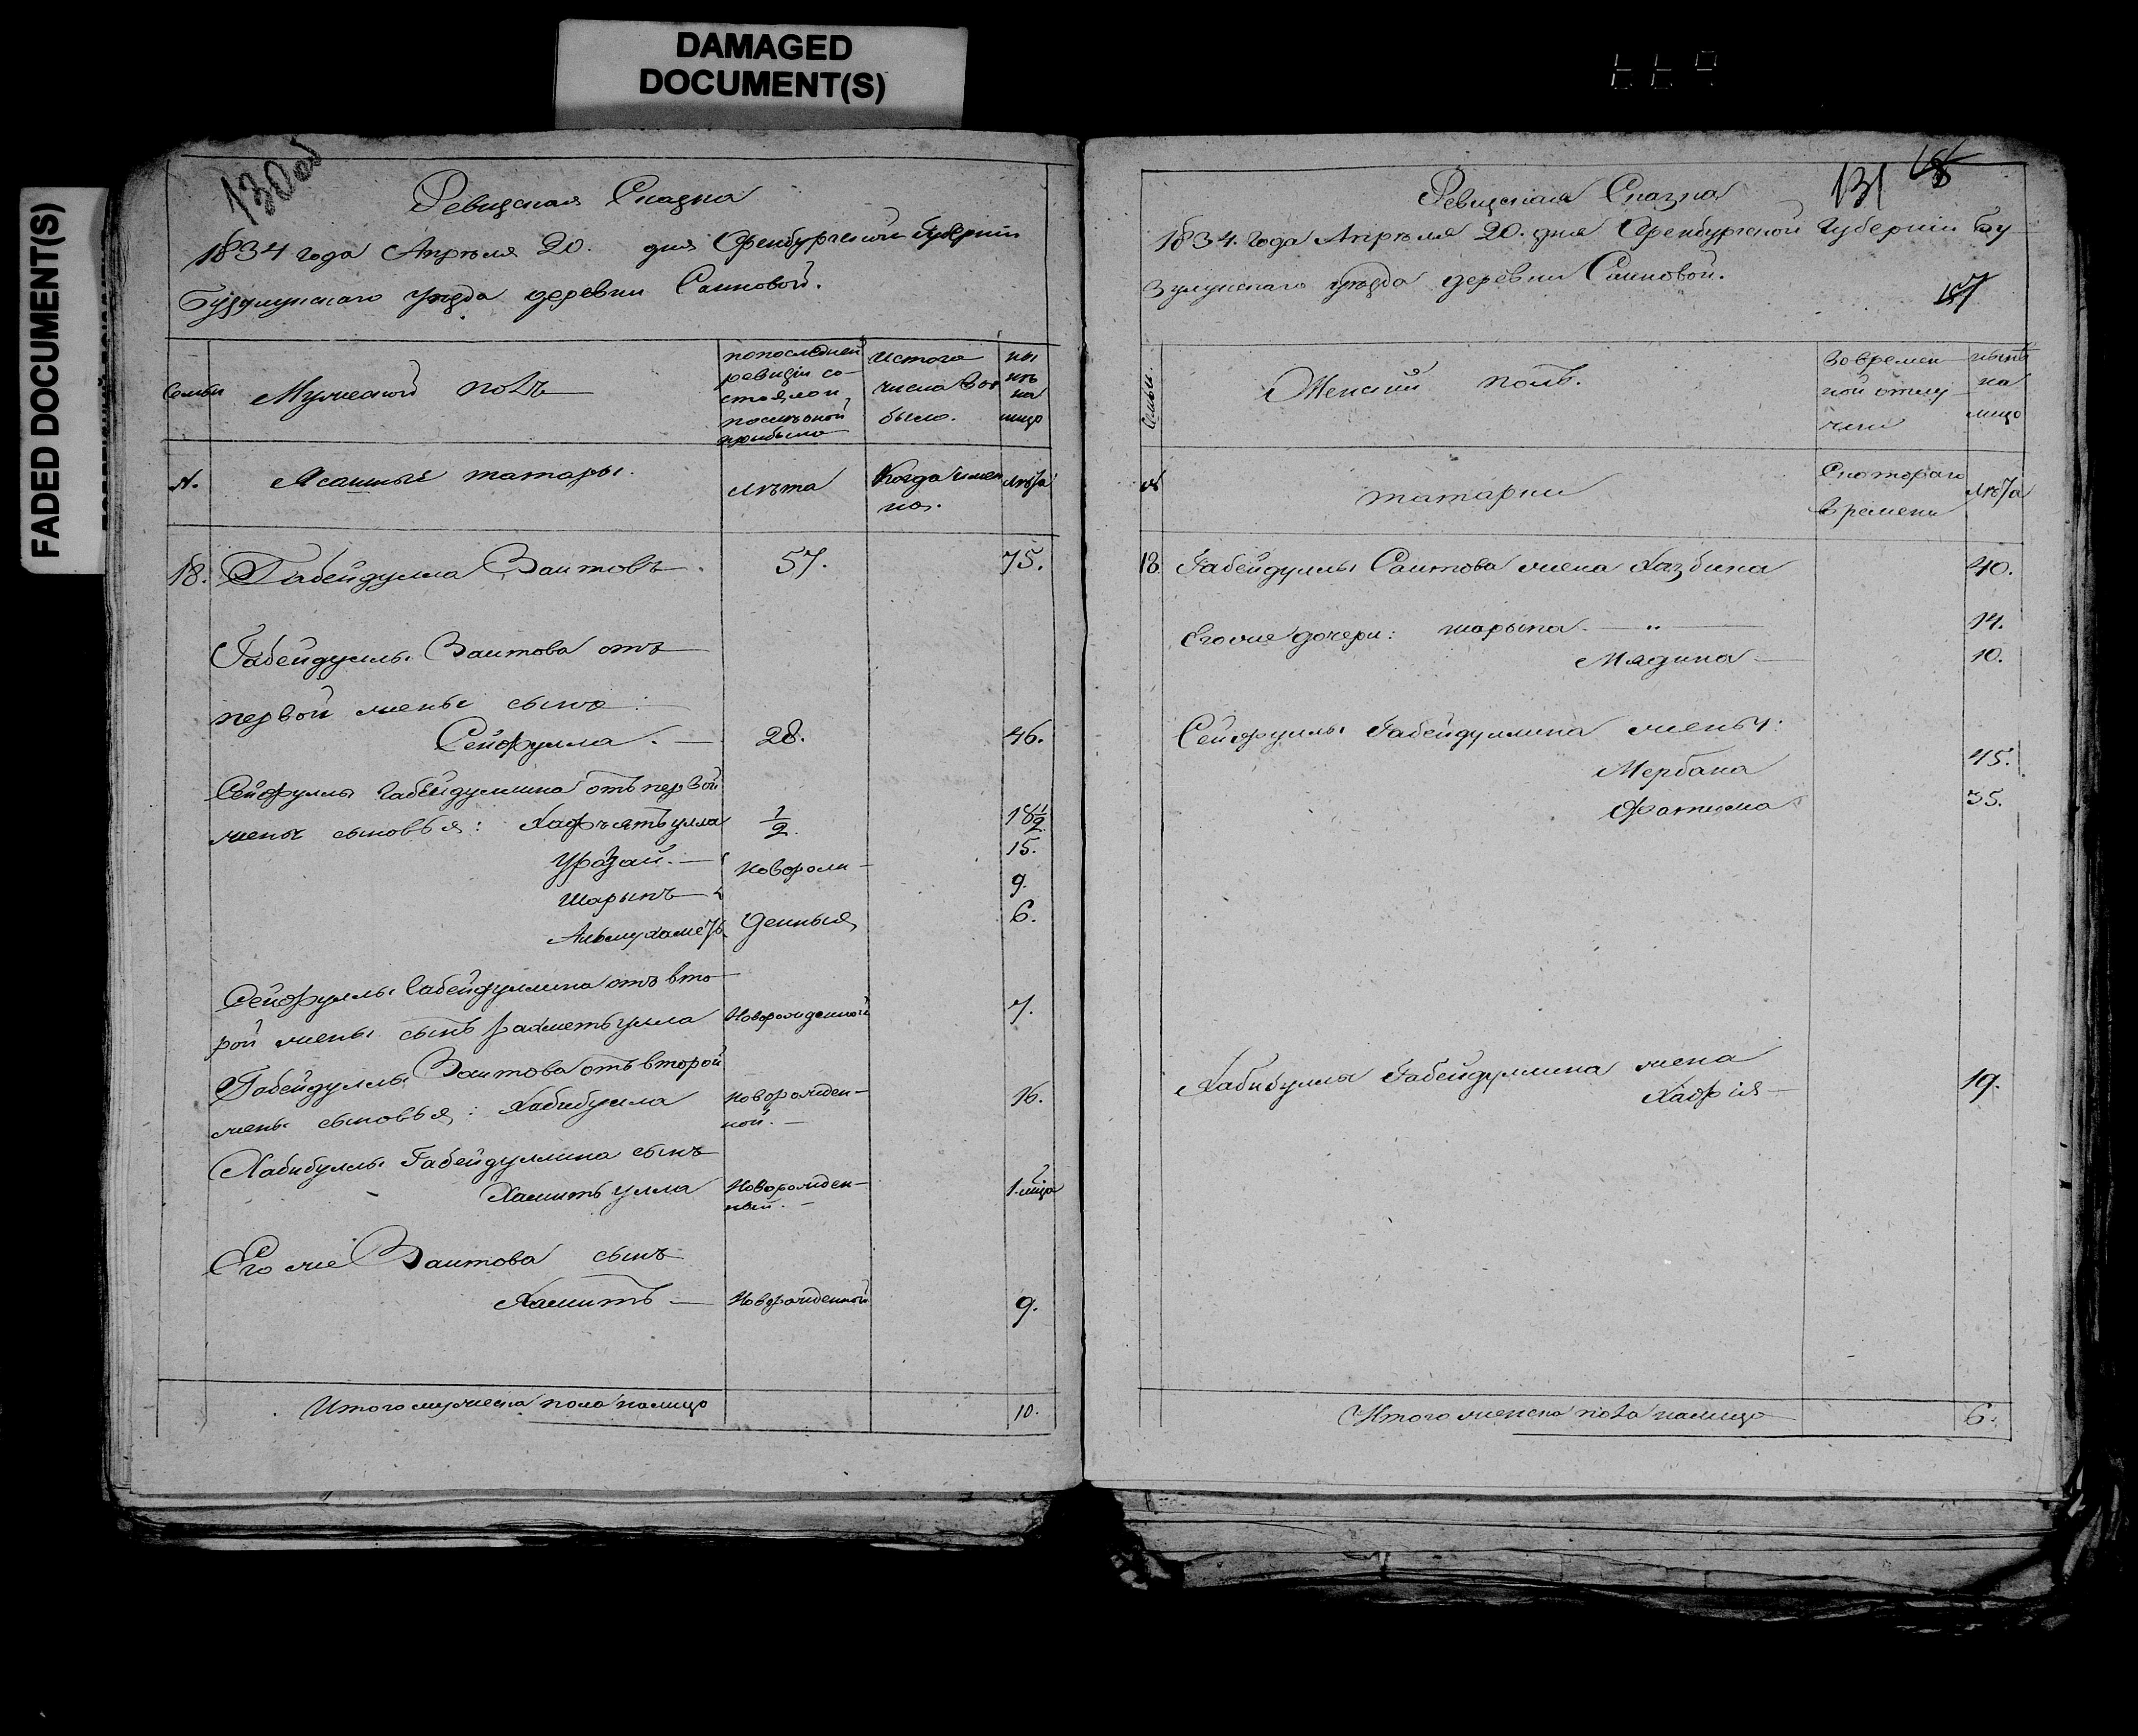 DAMAGED
DOCUMENT(S)
FADED DOCUMENT(S)
130 об
Ревизская Сказка
1834 года Апреля 20. дня Оренбургской Губернии
Бузулукскаго уезда деревни Саиновой.
Семьи
Мужеской полъ
попоследней
ревизiи со-
стояло и
послѣ оной
прибыло
Изтого
числа вы
было.
ны
нѣ
на
лицо
№.
Ясашные татары.
лѣта
Когда имен
но.
лѣта
18. Габейдулла Ваитовъ. 57. 75.
Габейдуллы Ваитова отъ
первой жены сынъ:
Сейфулла. — 28. 46.
Сейфуллы Габейдуллина отъ первой
жены сыновья: Хафъятъулла 1/2. 18 1/2.
Уразай. — новорож- 15.
Шарыпъ — 9.
Альмухаметъ денныя 6.
Сейфуллы Габейдуллина отъ вто
рой жены сынъ рахметъулла Новорожденной 7.
Габейдуллы Ваитова отъ второй
жены сыновья: Хабибулла новорожден- 16.
ной. —
Хабибуллы Габейдуллина сынъ
Хамитъ улла Новорожден- 1. мца
ный. —
Его же Ваитова сынъ
Хамитъ — Новорожденной 9.
Итого мужеска пола налицо 10.
Ревизская Сказка
131
1834. года Апреля 20. дня Оренбургской Губернiи Бу
зулукскаго уезда деревни Саиновой.
157
Семьи.
Женскiй полъ.
Во времен
ной отлу
чке
нынѣ
на
лицо
№
татарки
Скотораго
времени
лѣта
18. Габейдуллы Саитова жена Хазбика 40.
Его же дочери: шарыпа — „ — 14.
Мядина — 10.
Сейфуллы Габейдуллина жены:
Мербана 45.
Фатима 35.
Хабибуллы Габейдуллина жена
Хафiя — 19.
Итого женска пола налицо 6.